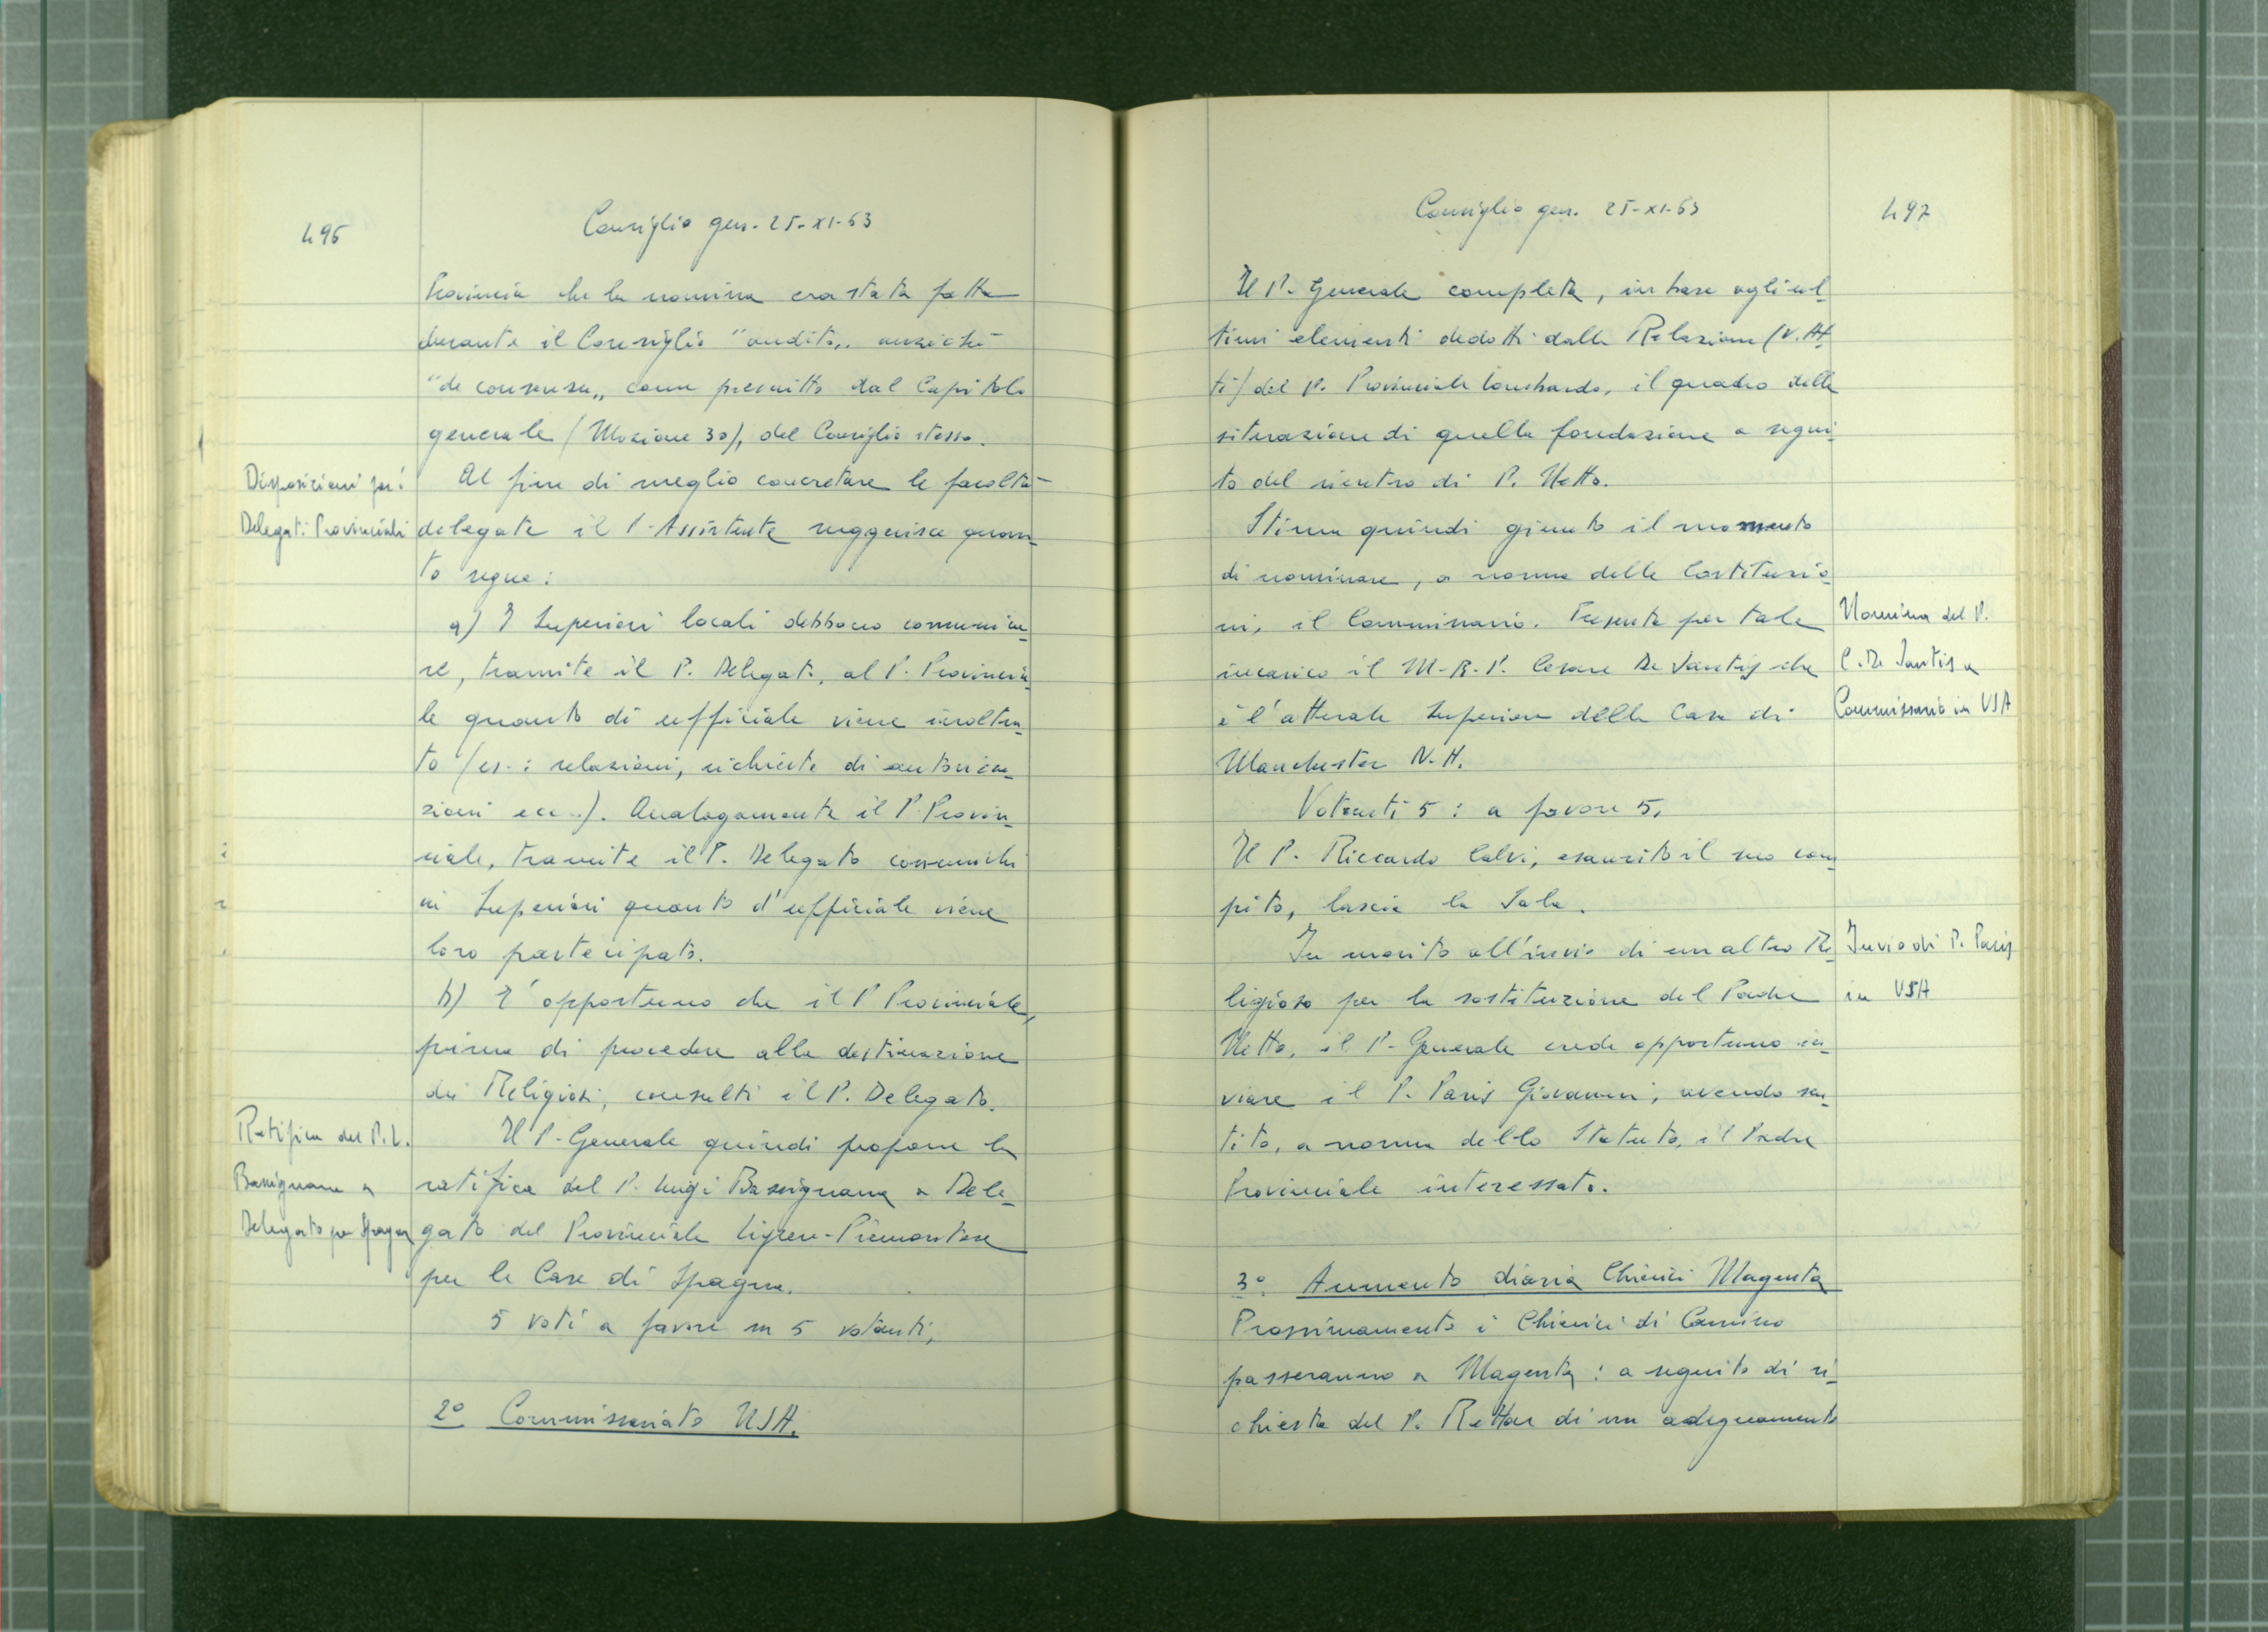 496
Consiglio gen. 25-XI-63
Provincia che la nomina era stata fatta
durante il Consiglio "audito„ anziché
"de consensu„ come prescritto dal Capitolo
generale (Mozione 30), del Consiglio stesso.
Disposizioni per i
Delegati Provinciali
Al fine di meglio concretare le facoltà
delegate il P. Assistente suggerisce quan=
to segue:
a) I Superiori locali debbono comunica=
re, tramite il P. Delegato, al P. Provincia=
le quanto di ufficiale viene inoltra=
to (es.: relazioni, richieste di autorizza=
zioni ecc..). Analogamente il P. Provin=
ciale, tramite il P. Delegato comunichi
ai Superiori quanto d'ufficiale viene
loro partecipato.
b) È opportuno che il P Provinciale,
prima di procedere alla destinazione
dei Religiosi, consulti il P. Delegato.
Ratifica del P. L.
Bassignana a
Delegato per Spagna
Il P. Generale quindi propone la
ratifica del P. Luigi Bassignana a Dele=
gato del Provinciale Ligure-Piemontese
per le Case di Spagna.
5 voti a favore su 5 votanti.
2° Commissariato USA.
497
Consiglio gen. 25-XI-63
Il P. Generale completa, in base agli ul=
timi elementi dedotti dalla Relazione (V. At=
ti) del P. Provinciale Lombardo, il quadro della
situazione di quella fondazione a segui=
to del rientro di P. Netto.
Stima quindi giunto il momento
di nominare, a norma delle Costituzio=
ni, il Commissario. Presenta per tale
incarico il M.R.P. Cesare De Santis che
è l'attuale Superiore della Casa di
Manchester N.H.
Nomina del P.
C. De Santis a
Commissario in USA
Votanti 5: a favore 5.
Il P. Riccardo Calvi, esaurito il suo com=
pito, lascia la Sala.
In merito all'invio di un altro Re=
ligioso per la sostituzione del Padre
Netto, il P. Generale crede opportuno in=
viare il P. Paris Giovanni, avendo sen=
tito, a norma dello Statuto, il Padre
Provinciale interessato.
Invio di P. Paris
in USA
3° Aumento diaria Chierici Magenta
Prossimamente i Chierici di Camino
passeranno a Magenta: a seguito di ri=
chiesta del P. Rettore di un adeguamento